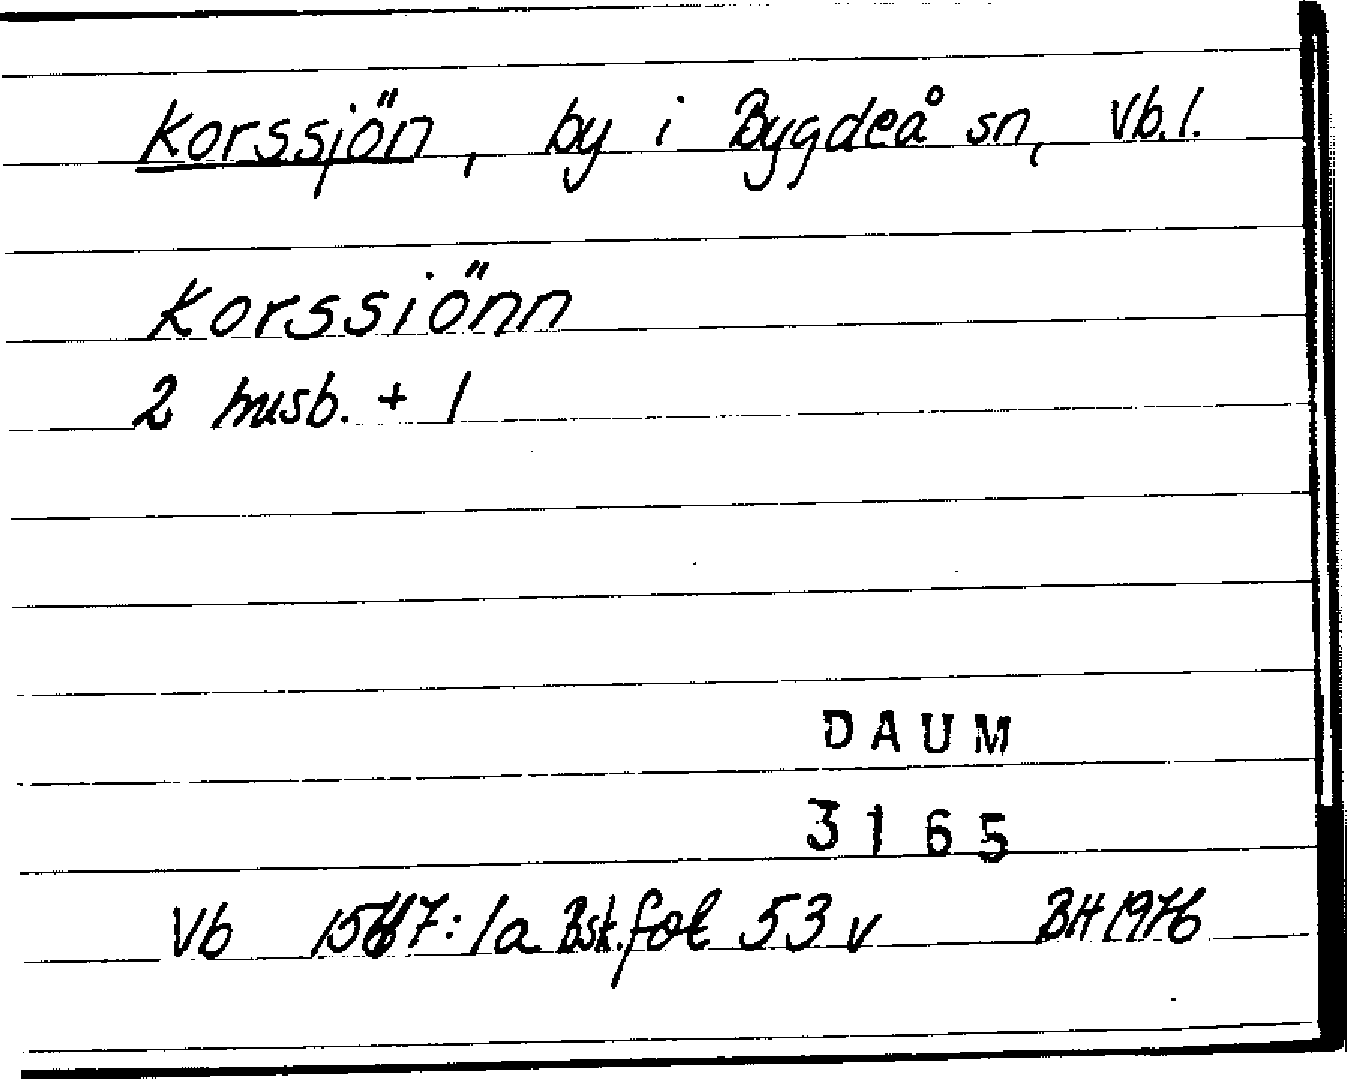 Korssjön, by i Bygdeå sn, Vb.l.
Korssiönn
2 husb. + 1
DAUM
3165
Vb 1567:1a Bsk.fol 53 v BH 1976